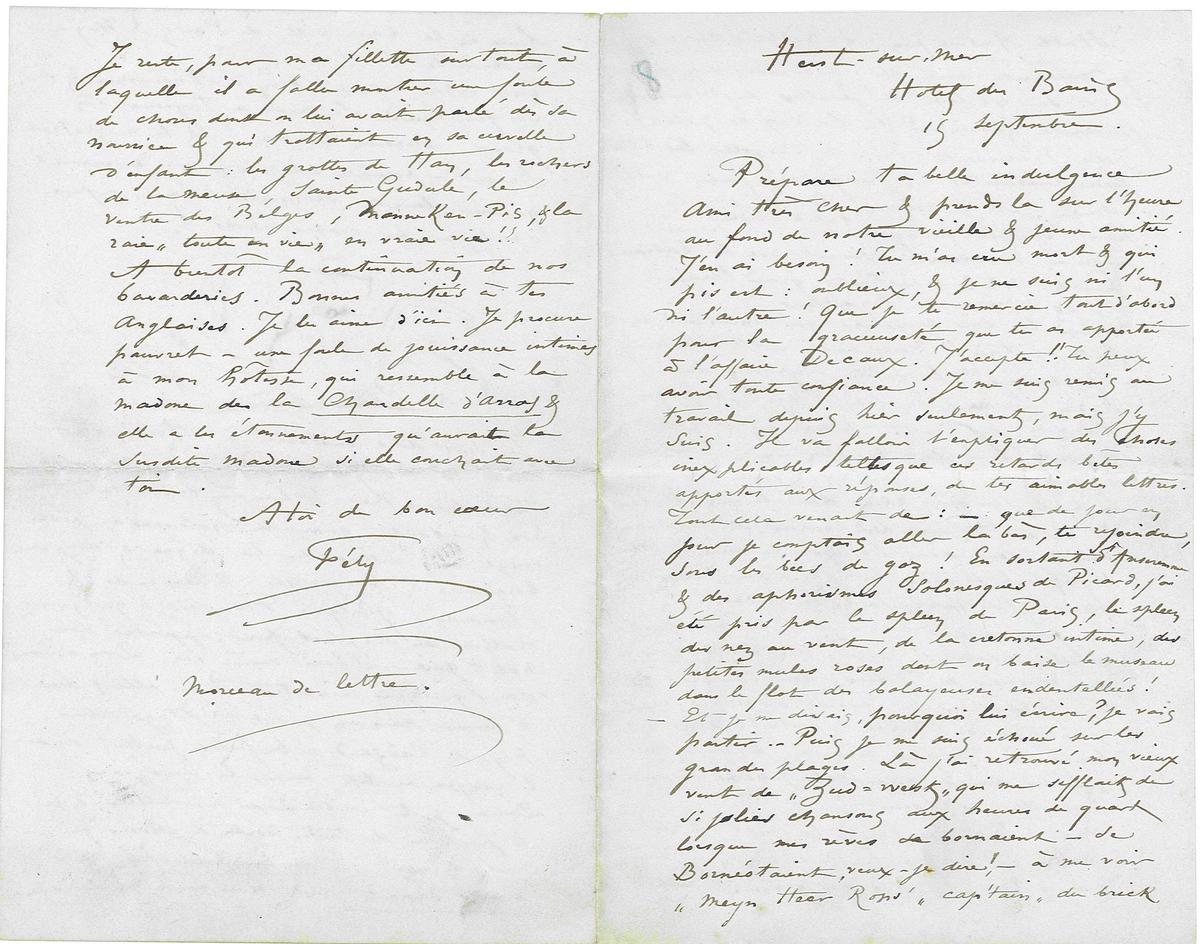 Heist-sur-mer
Hotel des Bains
15 septembre.
Prépare ta belle indulgence
Ami très cher & prends la sur l'heure
au fond de notre vieille & jeune amitié.
J'en ai besoin ! Tu m'as cru mort & qui
pis est : oublieux, & je ne suis ni l'un
ni l'autre ! Que je te remercie tout d'abord
pour la gracieuseté que tu as apportée
à l'affaire Decaux. J'accepte !! Tu peux
avoir toute confiance. Je me suis remis au
travail depuis hier seulement, mais j'y
suis. Il va falloir t'expliquer des choses
inexplicables telles que ces retards bêtes
apportés aux réponses, de tes aimables lettres.
Tout cela venait de : – que de jour en
jour je comptais aller là bàs, te rejoindre,
sous les becs de gaz ! En sortant d'Anseremme
& des aphorismes Solonesques de Picard, j'ai
été pris par le spleen de Paris, le spleen
des nez au vent, de la cretonne intime, des
petites mules roses dont on baise le museau
dans le flot des balayeuses endentellées !
– Et je me disais, pourquoi lui écrire ? je vais
partir -- Puis je me suis échoué sur les
grandes plages. Là j'ai retrouvé mon vieux
vent de „ Zud=west „ qui me sifflait de
si jolies chansons aux heures de quart
lorsque mes rêves se bornaient – se
Bornéotaient, veux-je dire ! – à me voir
„ Meyn Heer Rops „ captain „ du brick
Je reste, pour ma fillette surtout, à
laquelle il a fallu montrer une foule
de choses dont on lui avait parlé dès sa
nourrice & qui trottaient en sa cervelle
d'enfant : les grottes de Han, les rochers
de la Meuse, Sainte Gudule, le
ventre des Belges, Manneken-Pis, & la
raie „ toute en vie „ en vraie vie !!
A bientôt la continuation de nos
bavarderies. Bonnes amitiés à tes
Anglaises. Je les aime d'ici. Je procure
pauvret – une foule de jouissance intimes
à mon hôtesse, qui ressemble à la
madone de la Chandelle d'Arras &
elle a les étonnements qu'aurait la
susdite madone si elle couchait avec
toi.
A toi de bon cœur
Fély
Morceau de lettre.